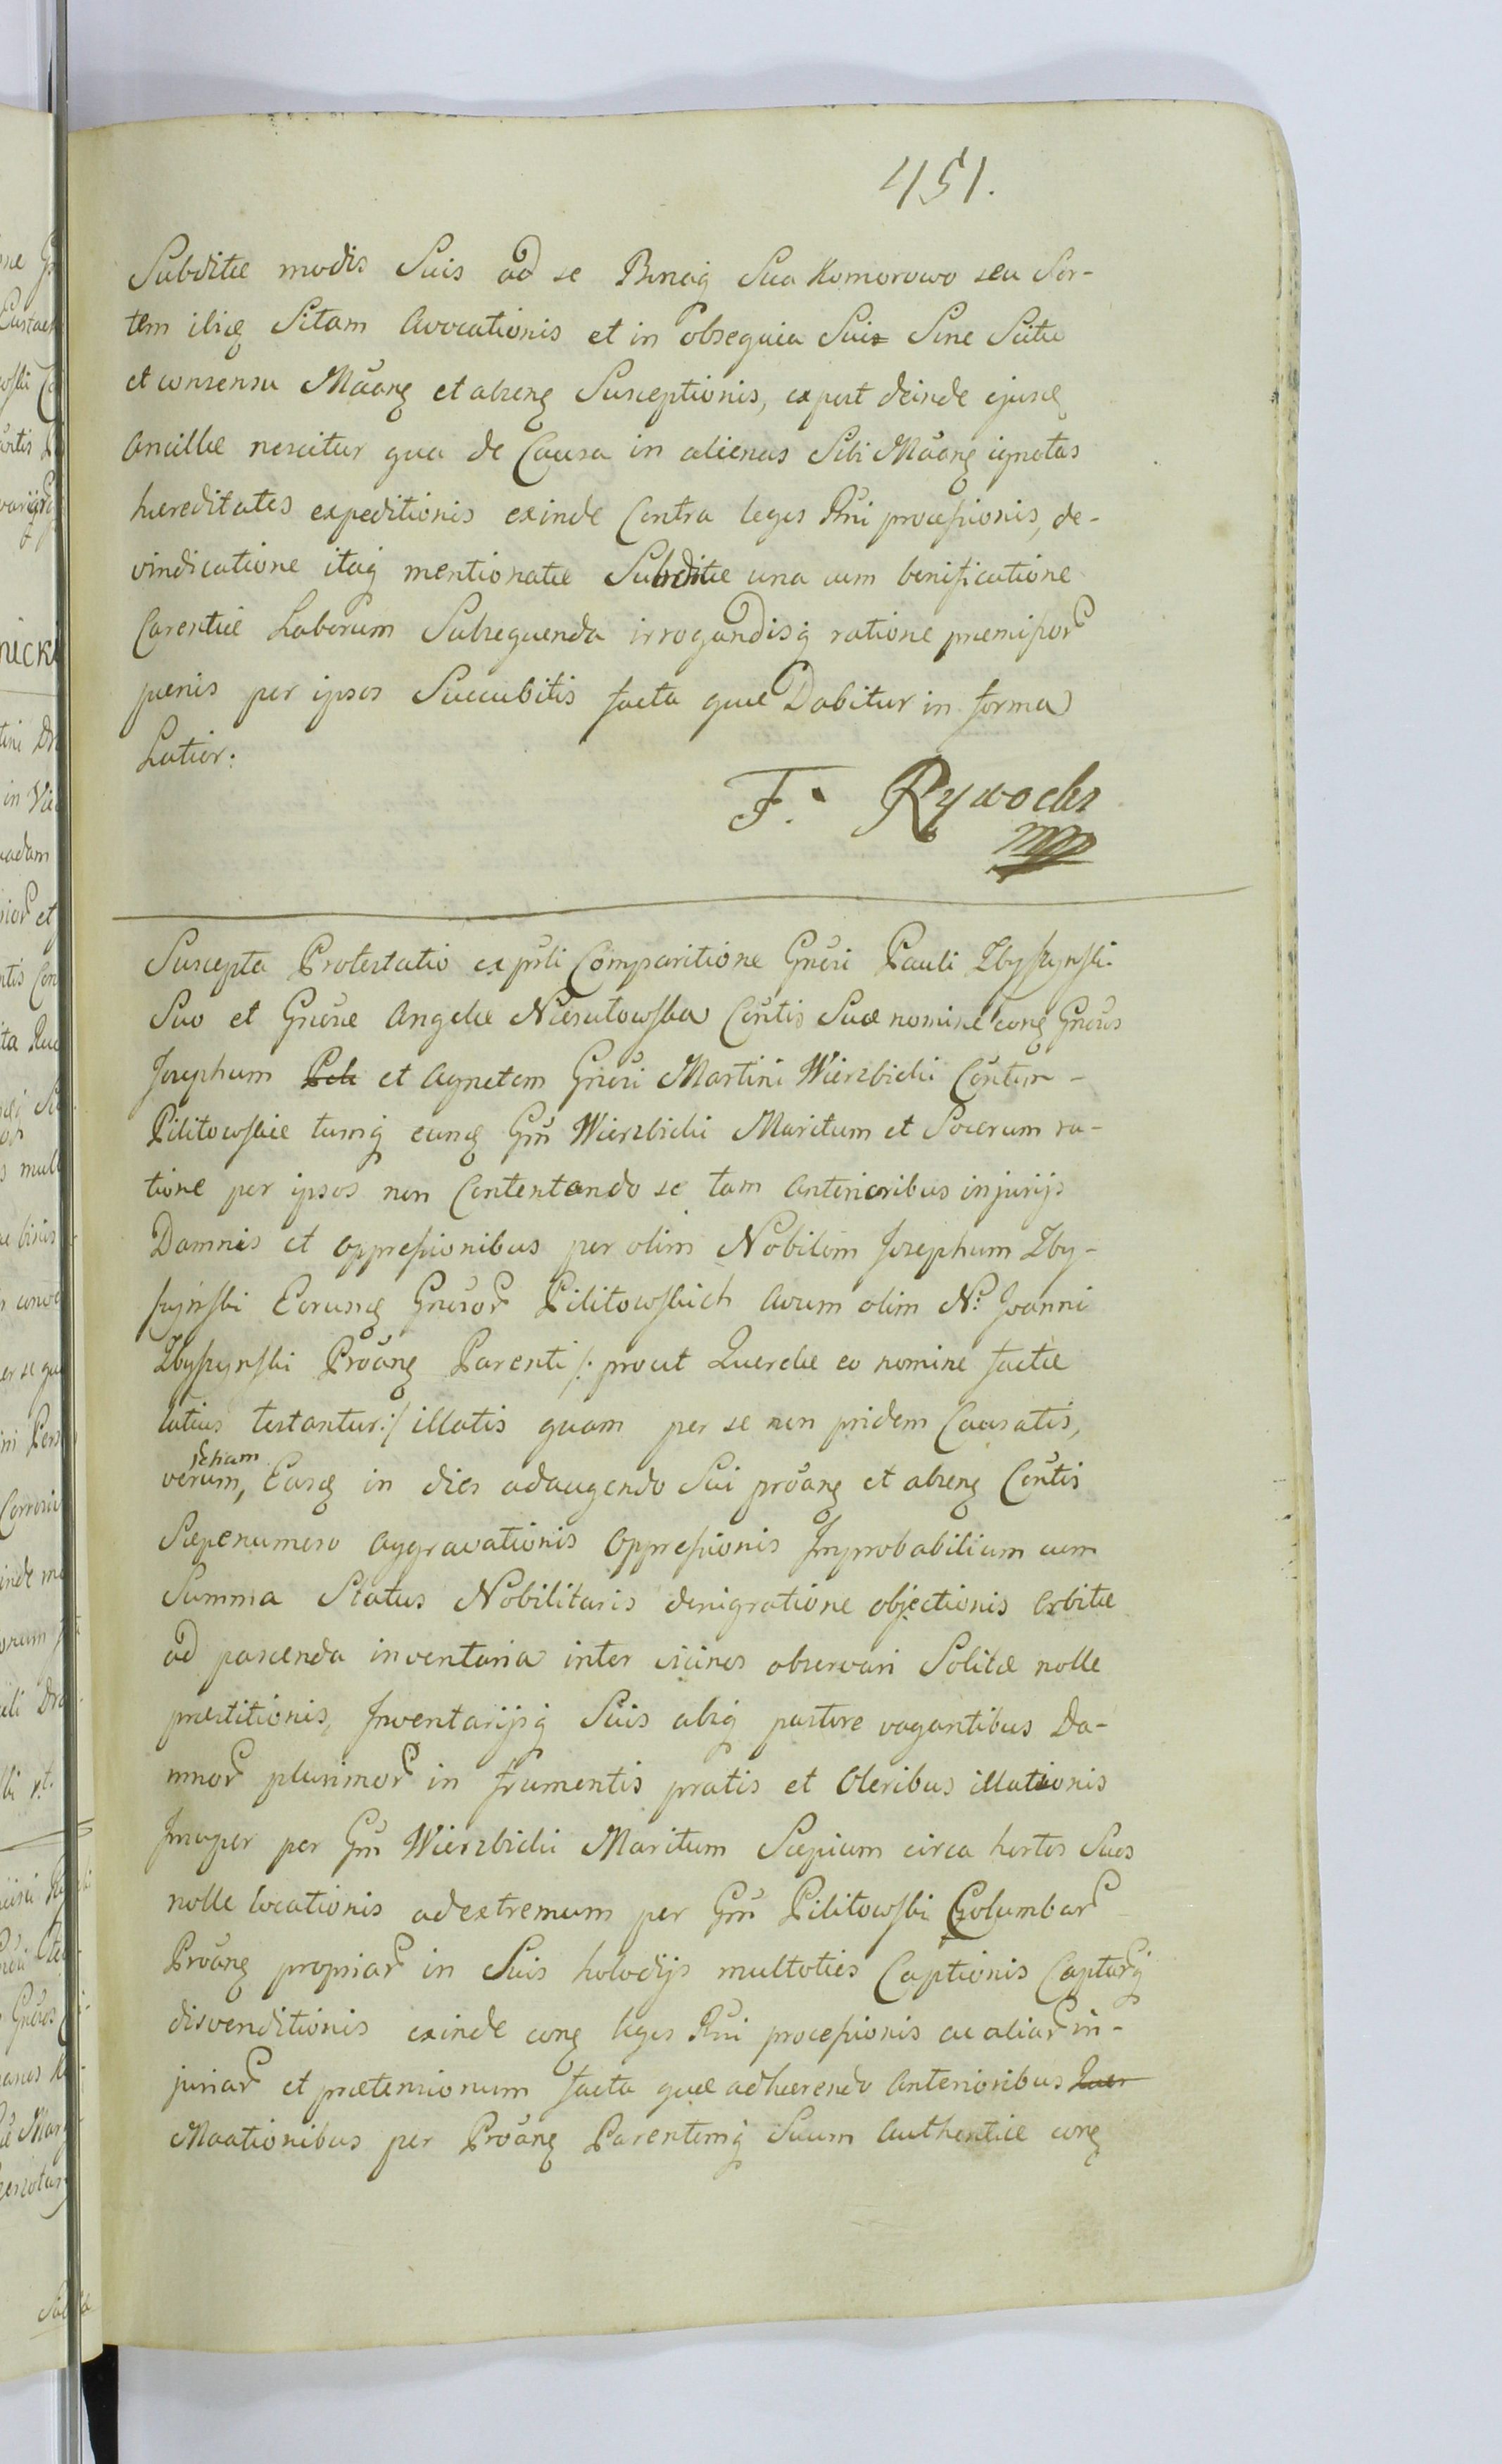 451.
Subditæ modis Suis ad se Bonaq̃ Sua Komorowo seu Sor-
tem ibiq̃ Sitam avocationis et in obsequia Suis Sine Scitu
et consensu Mãang et abseng Susceptionis, expost deinde ejusq̃
Ancillæ nescitur qua de Causa in alienas Sibi Mãang ignotas
hæreditates expeditionis exinde Contra leges Rni processionis, de-
vindicatione itaq̃ mentionatæ Subditæ una cum bonificatione
Carentiæ Laborum Subsequenda irrogandisq̃ ratione præmissor
pænis per ipsos Succubitis facta quæ Dabitur in forma
Latior:
F. Rywocki
mpp
Suscepta Protestatio ex pñli Comparitione Gnõsi Pauli Zbyszynski
Suo et Gnõsæ Angelæ Niesutowska Cõntis Suæ nomine cong Gnõsos
Josephum et Agnetem Gnõsi Martini Wierzbicki Cõntem
Pilitowskie tumq̃ eunq̃ Gm̃ Wierzbicki Maritum et Socerum ra-
tione per ipsos non Contentando se tam anterioribus injurijs
Damnis et oppressionibus per olim Nobilem Josephum Zby-
szynski Eorunq̃ Gnõsor Pilitowskich Avum olim N: Joanni
Zbyszynski Prõang Parenti /: prout Querelæ eo nomine factæ
latius testantur :/ illatis quam per se non pridem Causatis,
verum, etiam Easq̃ in dies adaugendo Sui prõang et abseng Cõntis
Sæpenumero aggravationis Oppressionis Improbabilium cum
Summa Status Nobilitaris denigratione objectionis orbitæ
ad pascenda inventaria inter vicinos observari Solitæ nolle
præstitionis, Inventarijsq̃ Suis absq̃ pastore vagantibus Da-
mnor plurimor in frumentis pratis et Oleribus illationis
Insuper per Gm̃ Wierzbicki Maritum Sæpium circa hortos Suos
nolle locationis ad extremum per Gm̃ Pilitowski Columbar
Prõang propriar in Suis holodijs multoties Captionis Capturq̃
disvenditionis exinde cong leges Rni processionis ac aliar in-
juriar et prætensionum facta quæ adhærendo anterioribus
Maationibus per Prõang Parentemq̃ Suum Authenticæ cong